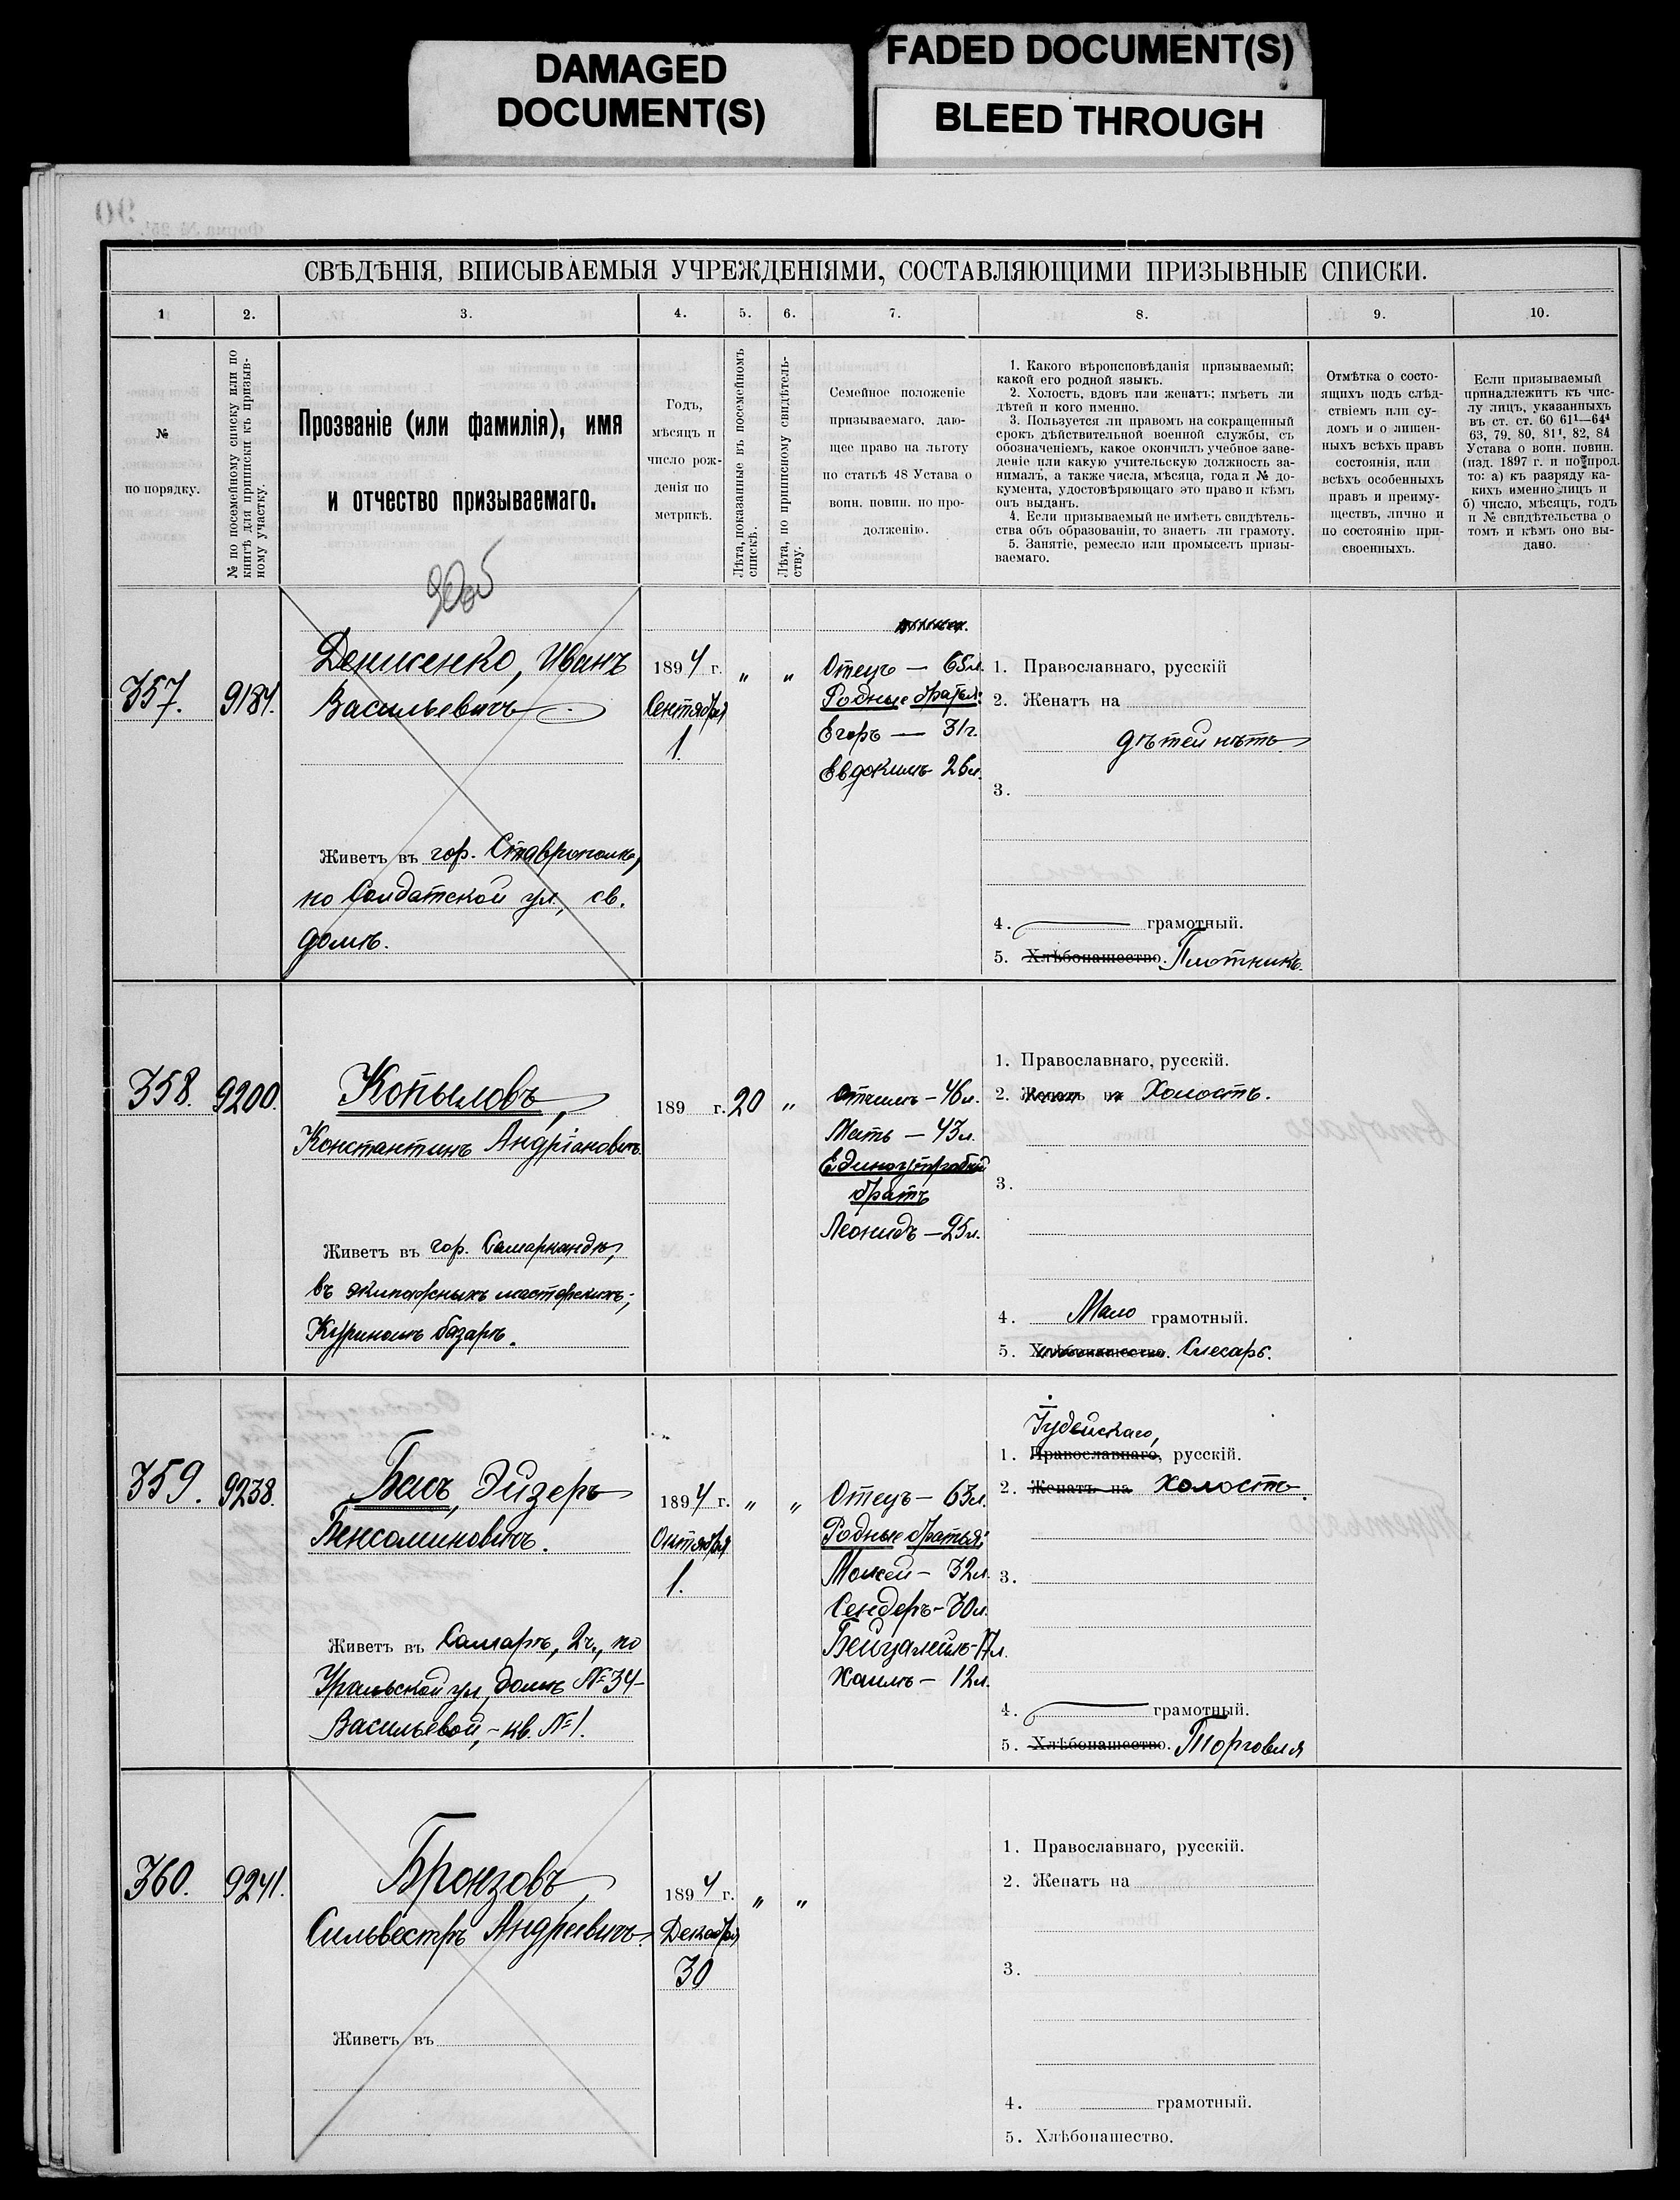 DAMAGED
DOCUMENT(S)
FADED DOCUMENT(S)
BLEED THROUGH
СВѢДѢНІЯ, ВПИСЫВАЕМЫЯ УЧРЕЖДЕНІЯМИ, СОСТАВЛЯЮЩИМИ ПРИЗЫВНЫЕ СПИСКИ.
1 2. 3. 4. 5. 6. 7. 8. 9. 10.
№
по порядку.
№ по посемейному списку или по
книгѣ для приписки къ призыв-
ному участку.
Прозваніе (или фамилія), имя
и отчество призываемаго.
Годъ,
мѣсяцъ и
число рож-
денія по
метрикѣ.
Лѣта, показанные въ посемейномъ
спискѣ.
Лѣта, по приписному свидѣтель-
ству.
Семейное положеніе
призываемаго, даю-
щее право на льготу
по статьѣ 48 Устава о
воин. повин. по про-
долженію.
1. Какого вѣроисповѣданія призываемый;
какой его родной языкъ.
2. Холостъ, вдовъ или женатъ; имѣетъ ли
дѣтей и кого именно.
3. Пользуется ли правомъ на сокращенный
срокъ дѣйствительной военной службы, съ
обозначеніемъ, какое окончилъ учебное заве-
деніе или какую учительскую должность за-
нималъ, а также числа, мѣсяца, года и № до-
кумента, удостовѣряющаго это право и кѣмъ
онъ выданъ.
4. Если призываемый не имѣетъ свидѣтель-
ства объ образованіи, то знаетъ ли грамоту.
5. Занятіе, ремесло или промыселъ призы-
ваемаго.
Отмѣтка о состо-
ящихъ подъ слѣд-
ствіемъ или су-
домъ и о лишен-
ныхъ всѣхъ правъ
состоянія, или
всѣхъ особенныхъ
правъ и преиму-
ществъ, лично и
по состоянію при-
своенныхъ.
Если призываемый
принадлежитъ къ чис-
лу лицъ, указанныхъ
въ ст. ст. 60 61¹—64⁴
63, 79, 80, 81¹, 82, 84
Устава о воин. повин.
(изд. 1897 г. и по прод.
то: а) къ разряду ка-
кихъ именно лицъ и
б) число, мѣсяцъ, годъ
и № свидѣтельства о
томъ и кѣмъ оно вы-
дано.
357.
9184.
Денисенко, Иванъ
Васильевичъ
Живетъ въ гор. Ставрополѣ,
по Солдатской ул., св.
домѣ.
1894 г.
Сентября
1.
„ „
Отецъ — 65 л.
Родные братья:
Егоръ — 31 г.
Евдокимъ 26 л.
1. Православнаго, русскій
2. Женатъ на
дѣтей нѣтъ
3.
4. грамотный.
5. Хлѣбопашество. Плотникъ.
358.
9200.
Копыловъ,
Константинъ Андріановичъ.
Живетъ въ гор. Самаркандѣ,
въ экипажныхъ мастерскихъ,
Куриномъ базарѣ.
189 г.
20 „
Отчимъ — 46 л.
Мать — 43 л.
Единоутробный
братъ
Леонидъ — 25 л.
1. Православнаго, русскій.
2. Женатъ на Холостъ.
3.
4. Мало грамотный.
5. Хлѣбопашество. Слесарь.
359.
9238.
Басъ, Эйзеръ
Бенсоминовичъ.
Живетъ въ Самарѣ, 2 ч., по
Уральской ул, домъ № 34 -
Васильевой, - кв. № 1.
1894 г.
Октября
1.
„ „
Отецъ — 63 л.
Родные братья:
Мошей — 32 л.
Сендеръ — 30 л.
Бейцалель — 17 л.
Хаимъ — 12 л.
Іудейскаго,
1. Православнаго, русскій.
2. Женатъ на Холостъ.
3.
4. грамотный.
5. Хлѣбопашество. Торговля
360.
9241.
Бронзовъ,
Сильвестръ Андреевичъ.
Живетъ въ
1894 г.
Декабря
30
„ „
1. Православнаго, русскій.
2. Женатъ на
3.
4. грамотный.
5. Хлѣбопашество.